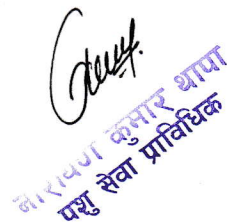 नारायण कुमार थापा
पशु सेवा प्राविधिक